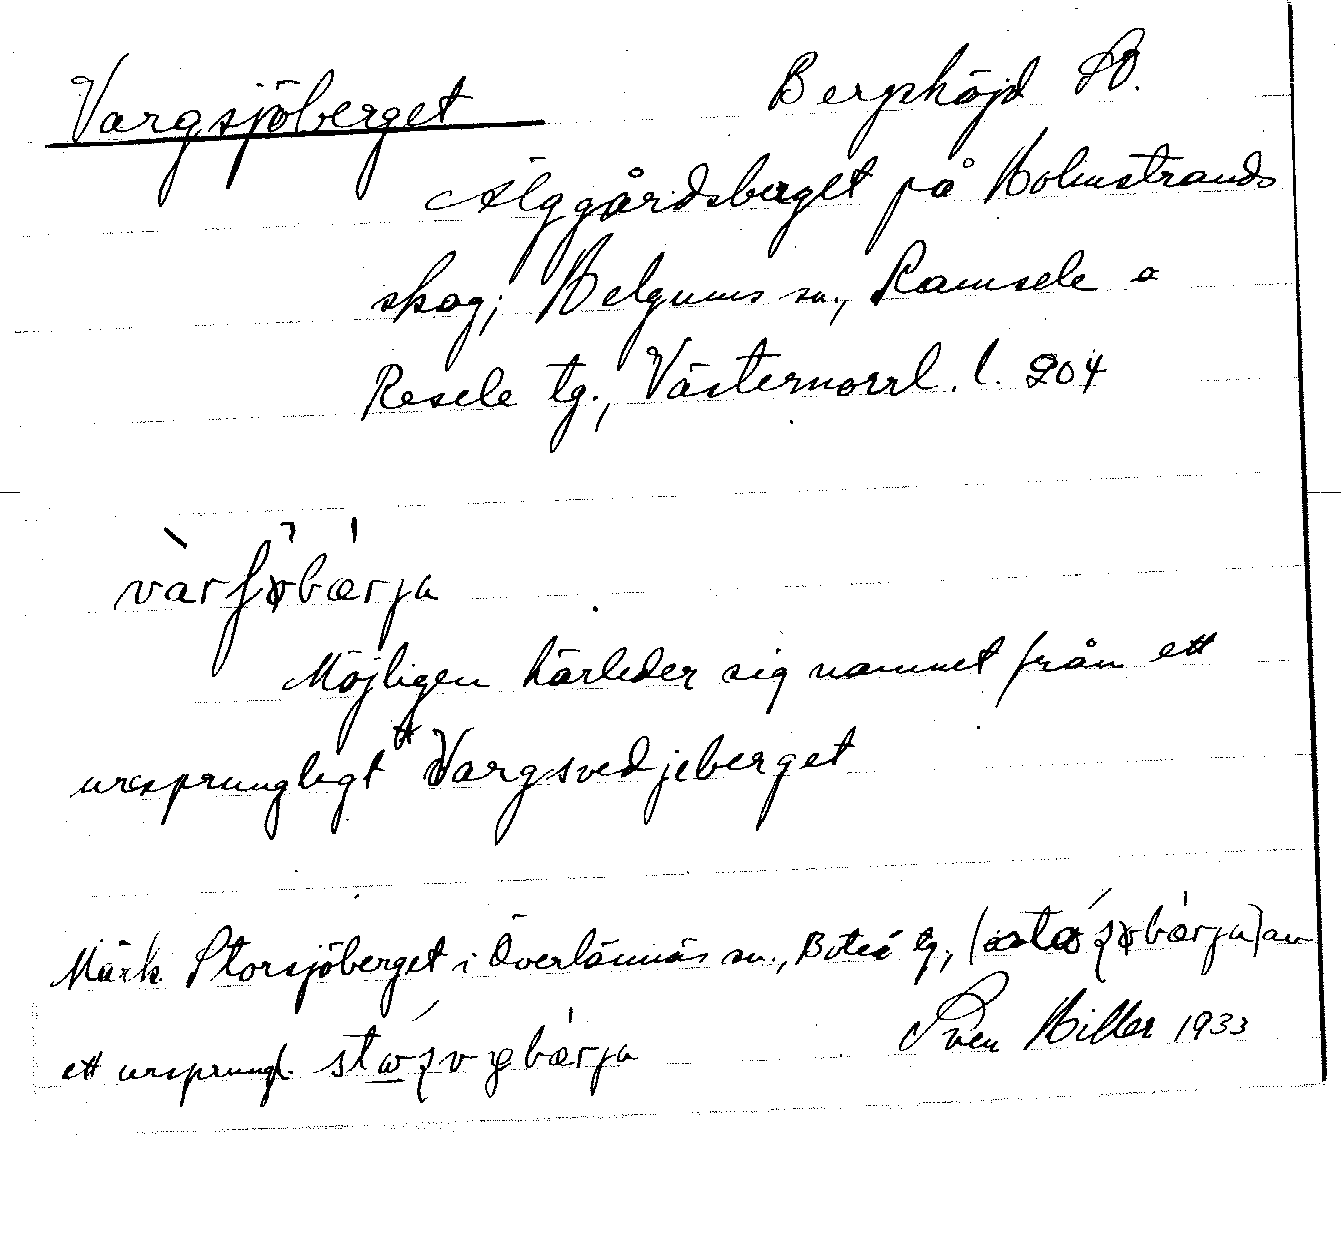 Vargsjöberget Bergshöjd SO.
Älggårdsberget på Holmstrands
skog; Helgums sn., Ramsele o
Resele tg., Västernorrl. l. 204
vàrʃøbærja
Möjligen härleder sig namnet från ett
ursprungligt Vargsvedjeberget
Märk Storsjöberget i Överlännäs sn., Boteå tg., av
ett ursprungl.
Sven Hiller 1933